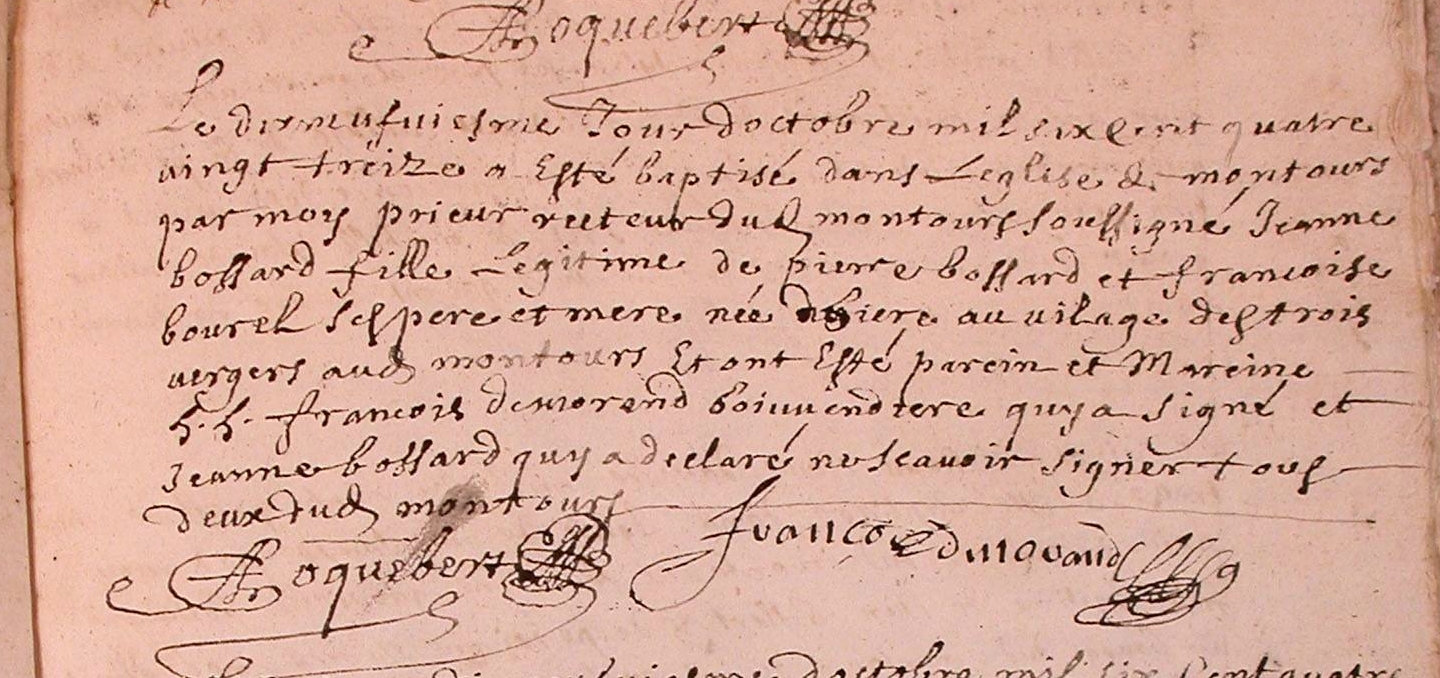 Roquebert
Le dixneufuiesme Jour doctobre mil six Cent quatre
vingt treize a Esté baptisé dans Leglise de montours
par moy prieur recteur dud montours soussigné Jeanne
bossard fille Legitime de pierre bossard et francoise
bourel ses pere et mere née dhiere au vilage des trois
vergers aud montours Et ont Esté parein et Mareine
h. h. francois demorend quy a signé et
Jeanne bossard quy a declaré ne scavoir signer tous
deux dud montours
Roquebert françois dmorand
doctobre mil six Cent quatre